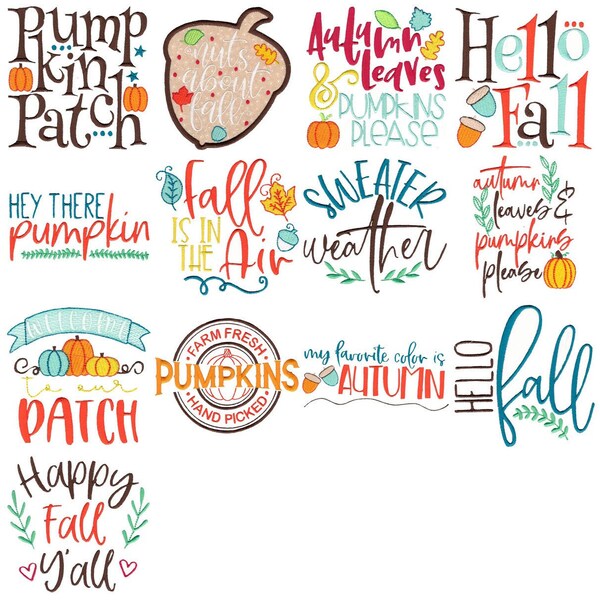 Pump
kin
Patch
nuts
about
fall
Autumn
leaves
& PUMPKINS
PLEASE
Hello
Fall
HEY THERE
pumpkin
fall
IS IN
THE Air
SWEATER
weather
autumn
leaves &
pumpkins
please
WELCOME
to our
PATCH
FARM FRESH
PUMPKINS
HAND PICKED
my favorite color is
AUTUMN
HELLO
fall
Happy
Fall
Y'all